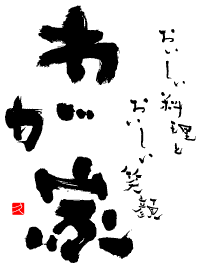 おいしい料理と
おいしい笑顔
わが
家
久